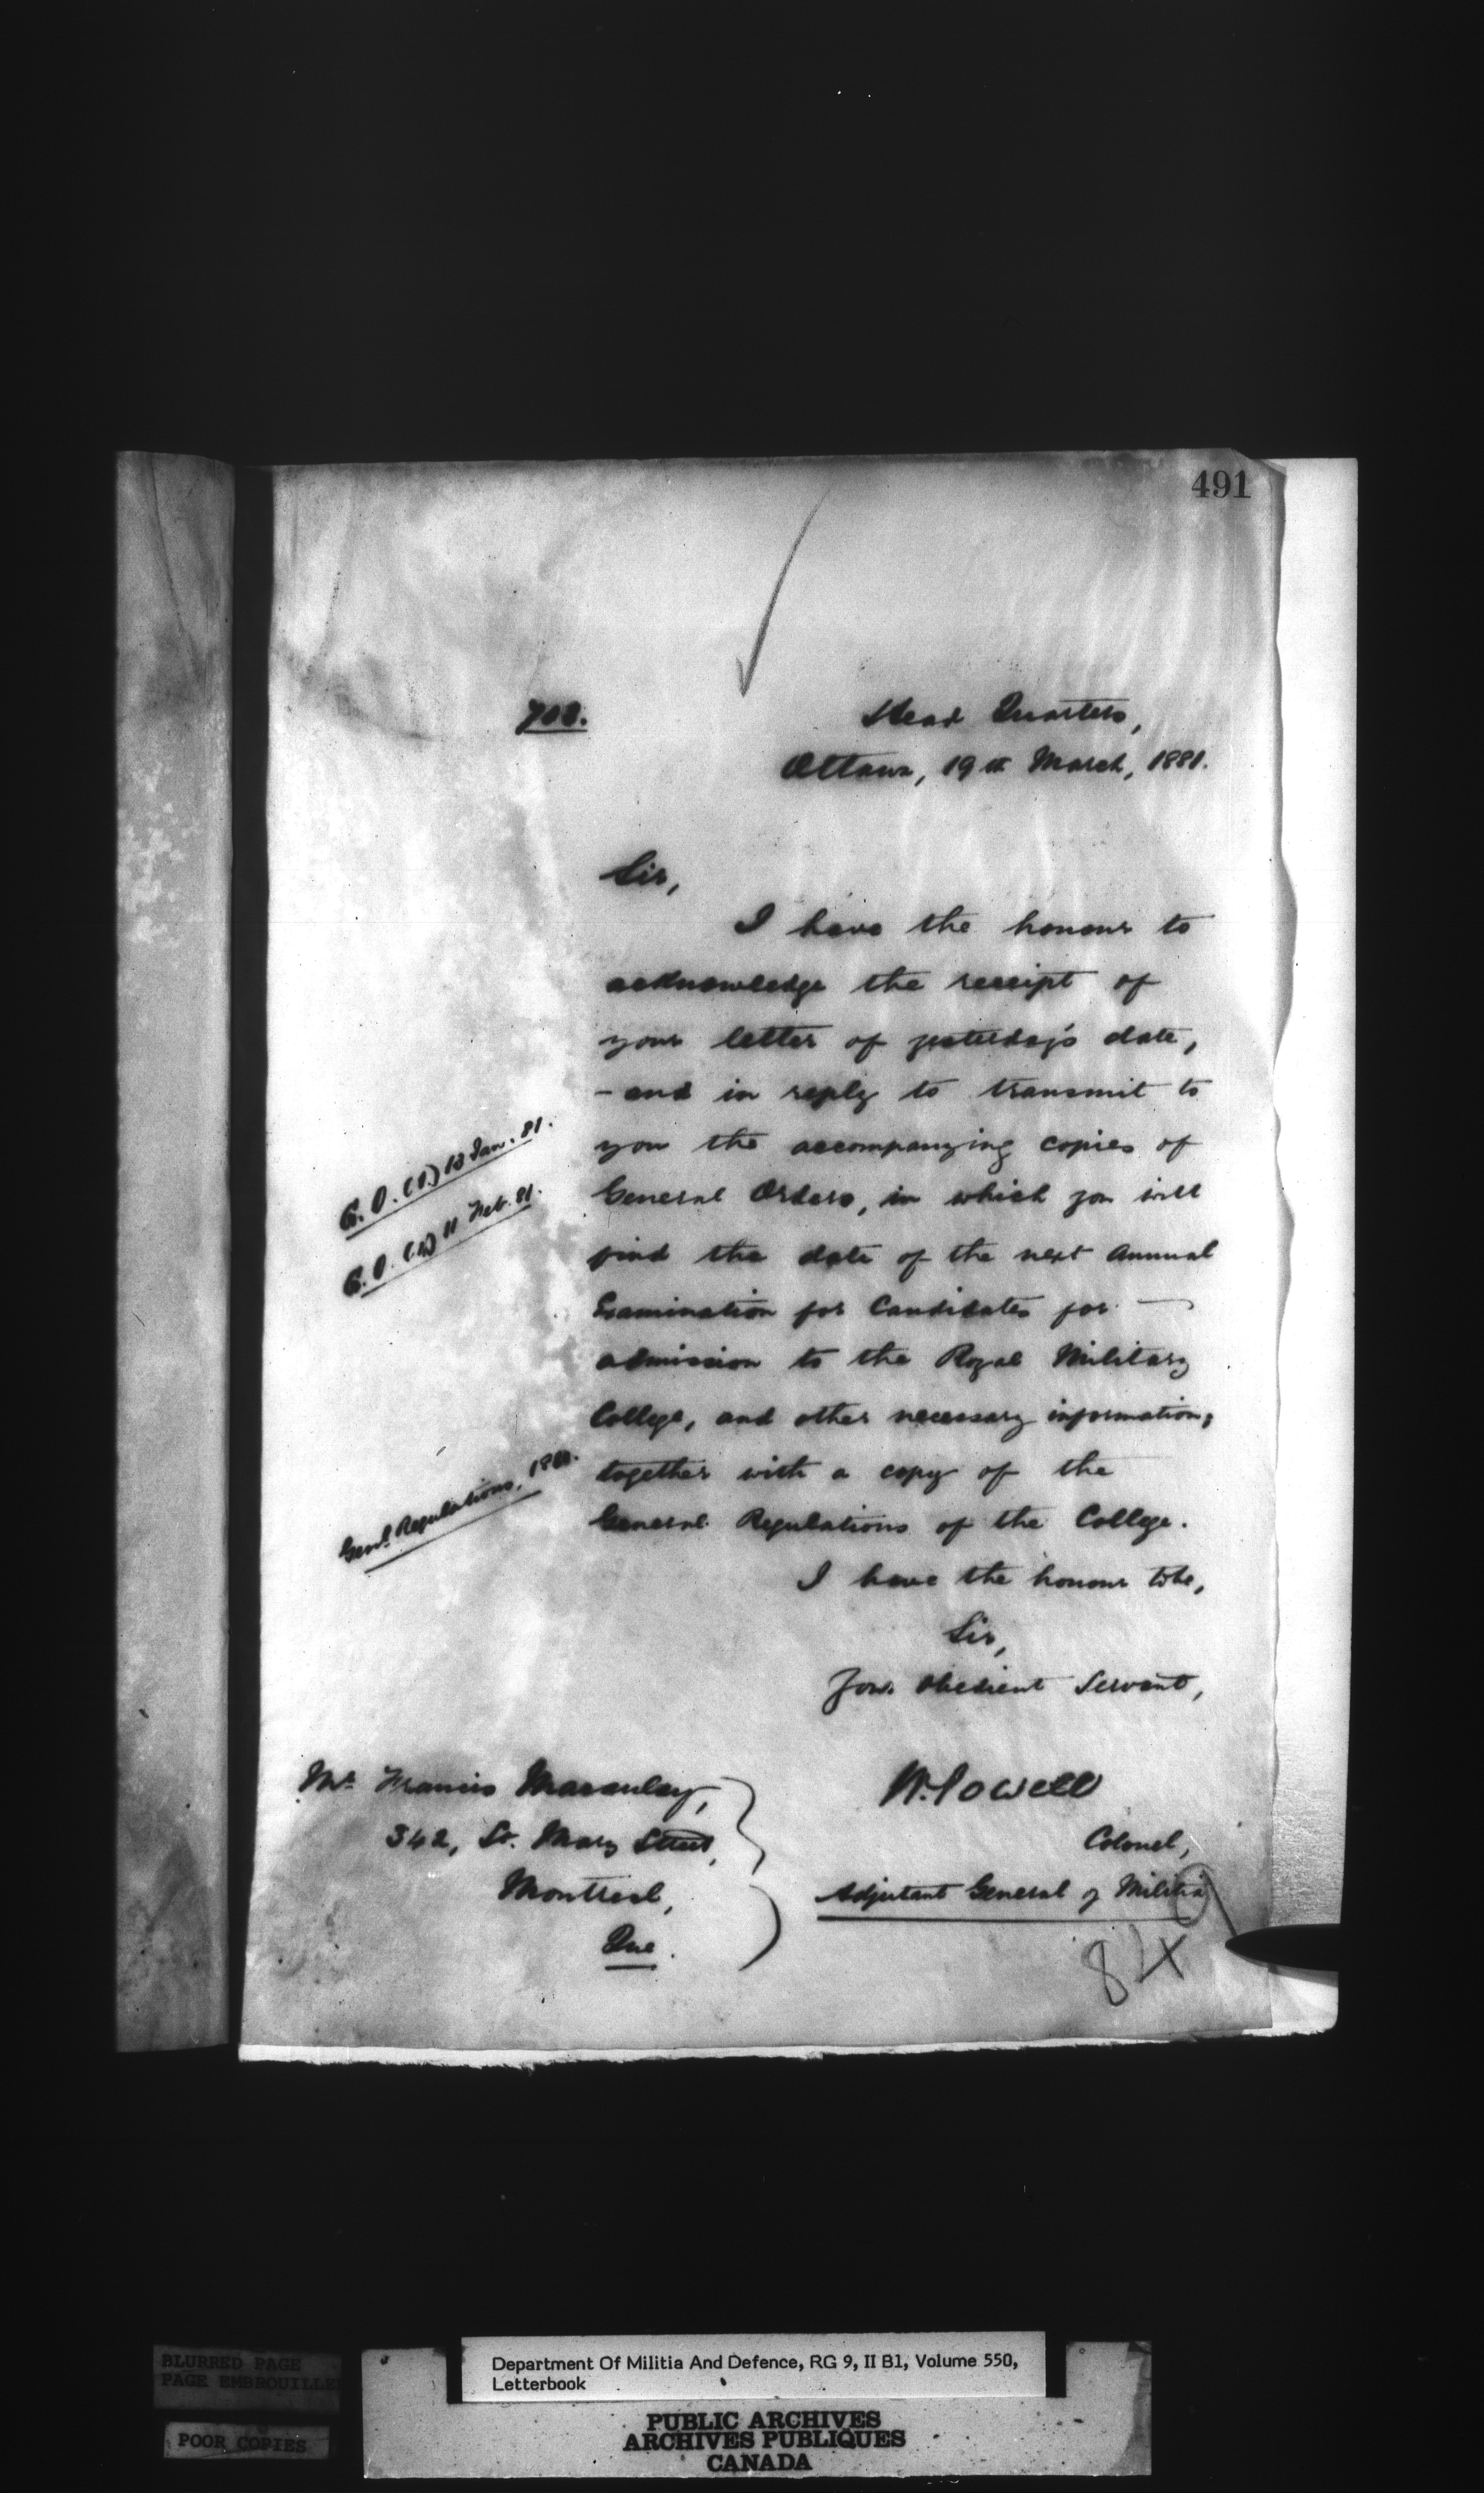 491
Head Quarters,
Ottawa, 19th March, 1881.
Sir,
I have the honour to
acknowledge the receipt of
your letter of yesterday's date,
- and in reply to transmit to
G. O. (1.) 13 Jan. 81.
you the accompanying copies of
G. O. 11 Feb. 81.
General Orders, in which you will
find the date of the next Annual
Examination for Candidates for
admission to the Royal Military
College, and other necessary information;
Genl. Regulations,
together with a copy of the
General Regulations of the College.
I have the honour to be,
Sir,
Your obedient Servant,
Mr. Francis Macaulay,
342, St. Mary Street,
Montreal,
Que.
W. Powell
Colonel,
Adjutant General of Militia
84
BLURRED PAGE
PAGE EMBROUILLE
POOR COPIES
Department Of Militia And Defence, RG 9, II B1, Volume 550,
Letterbook
PUBLIC ARCHIVES
ARCHIVES PUBLIQUES
CANADA